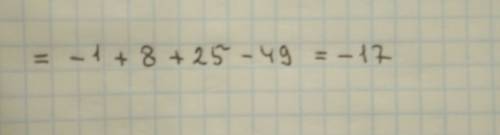 = -1 + 8 + 25 - 49 = -17